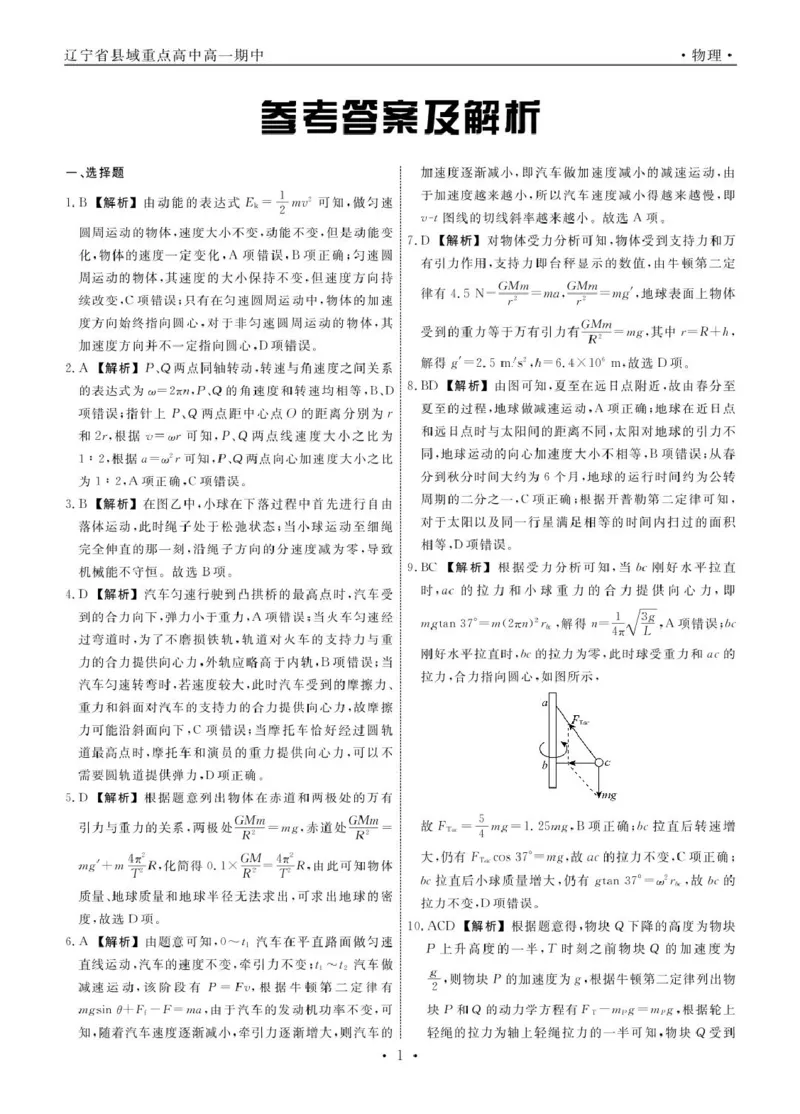 辽宁省县域重点高中高一期中
·物理·
参考答案及解析
一、选择题
1.B 【解析】由动能的表达式 Eₖ=1/2 mv² 可知,做匀速
圆周运动的物体,速度大小不变,动能不变,但是动能变
化,物体的速度一定变化,A 项错误,B 项正确;匀速圆
周运动的物体,其速度的大小保持不变,但速度方向持
续改变,C 项错误;只有在匀速圆周运动中,物体的加速
度方向始终指向圆心,对于非匀速圆周运动的物体,其
加速度方向并不一定指向圆心,D 项错误。
2.A 【解析】P、Q 两点同轴转动,转速与角速度之间关系
的表达式为 ω=2πn,P、Q 的角速度和转速均相等,B、D
项错误;指针上 P、Q 两点距中心点 O 的距离分别为 r
和 2r,根据 v=ωr 可知,P、Q 两点线速度大小之比为
1∶2,根据 a=ω²r 可知,P、Q 两点向心加速度大小之比
为 1∶2,A 项正确,C 项错误。
3.B 【解析】在图乙中,小球在下落过程中首先进行自由
落体运动,此时绳子处于松弛状态;当小球运动至细绳
完全伸直的那一刻,沿绳子方向的分速度减为零,导致
机械能不守恒。故选 B 项。
4.D 【解析】汽车匀速行驶到凸拱桥的最高点时,汽车受
到的合力向下,弹力小于重力,A 项错误;当火车匀速经
过弯道时,为了不磨损铁轨,轨道对火车的支持力与重
力的合力提供向心力,外轨应略高于内轨,B 项错误;当
汽车匀速转弯时,若速度较大,此时汽车受到的摩擦力、
重力和斜面对汽车的支持力的合力提供向心力,故摩擦
力可能沿斜面向下,C 项错误;当摩托车恰好经过圆轨
道最高点时,摩托车和演员的重力提供向心力,可以不
需要圆轨道提供弹力,D 项正确。
5.D 【解析】根据题意列出物体在赤道和两极处的万有
引力与重力的关系,两极处 GMm/R²=mg,赤道处 GMm/R²=
mg′+m 4π²/T² R,化简得 0.1×GM/R²=4π²/T² R,由此可知物体
质量、地球质量和地球半径无法求出,可求出地球的密
度,故选 D 项。
6.A 【解析】由题意可知,0~t₁ 汽车在平直路面做匀速
直线运动,汽车的速度不变,牵引力不变;t₁~t₂ 汽车做
减速运动,该阶段有 P=Fv,根据牛顿第二定律有
mgsin θ+F_f-F=ma,由于汽车的发动机功率不变,可
知,随着汽车速度逐渐减小,牵引力逐渐增大,则汽车的
加速度逐渐减小,即汽车做加速度减小的减速运动,由
于加速度越来越小,所以汽车速度减小得越来越慢,即
v-t 图线的切线斜率越来越小。故选 A 项。
7.D 【解析】对物体受力分析可知,物体受到支持力和万
有引力作用,支持力即台秤显示的数值,由牛顿第二定
律有 4.5 N-GMm/r²=ma,GMm/r²=mg′,地球表面上物体
受到的重力等于万有引力有 GMm/R²=mg,其中 r=R+h,
解得 g′=2.5 m/s²,h=6.4×10⁶ m,故选 D 项。
8.BD 【解析】由图可知,夏至在远日点附近,故由春分至
夏至的过程,地球做减速运动,A 项正确;地球在近日点
和远日点时与太阳间的距离不同,太阳对地球的引力不
同,地球运动的向心加速度大小不相等,B 项错误;从春
分到秋分时间大约为 6 个月,地球的运行时间约为公转
周期的二分之一,C 项正确;根据开普勒第二定律可知,
对于太阳以及同一行星满足相等的时间内扫过的面积
相等,D 项错误。
9.BC 【解析】根据受力分析可知,当 bc 刚好水平拉直
时,ac 的拉力和小球重力的合力提供向心力,即
mgtan 37°=m(2πn)²r_bc,解得 n=1/4π √(3g/L),A 项错误;bc
刚好水平拉直时,bc 的拉力为零,此时球受重力和 ac 的
拉力,合力指向圆心,如图所示,
a
F_Tac
b
c
mg
故 F_Tac=5/4 mg=1.25mg,B 项正确;bc 拉直后转速增
大,仍有 F_Tac cos 37°=mg,故 ac 的拉力不变,C 项正确;
bc 拉直后小球质量增大,仍有 gtan 37°=ω²r_bc,故 bc 的
拉力不变,D 项错误。
10.ACD 【解析】根据题意得,物块 Q 下降的高度为物块
P 上升高度的一半,T 时刻之前物块 Q 的加速度为
g/2,则物块 P 的加速度为 g,根据牛顿第二定律列出物
块 P 和 Q 的动力学方程有 F_T-m_P g=m_P g,根据轮上
轻绳的拉力为轴上轻绳拉力的一半可知,物块 Q 受到
·1·